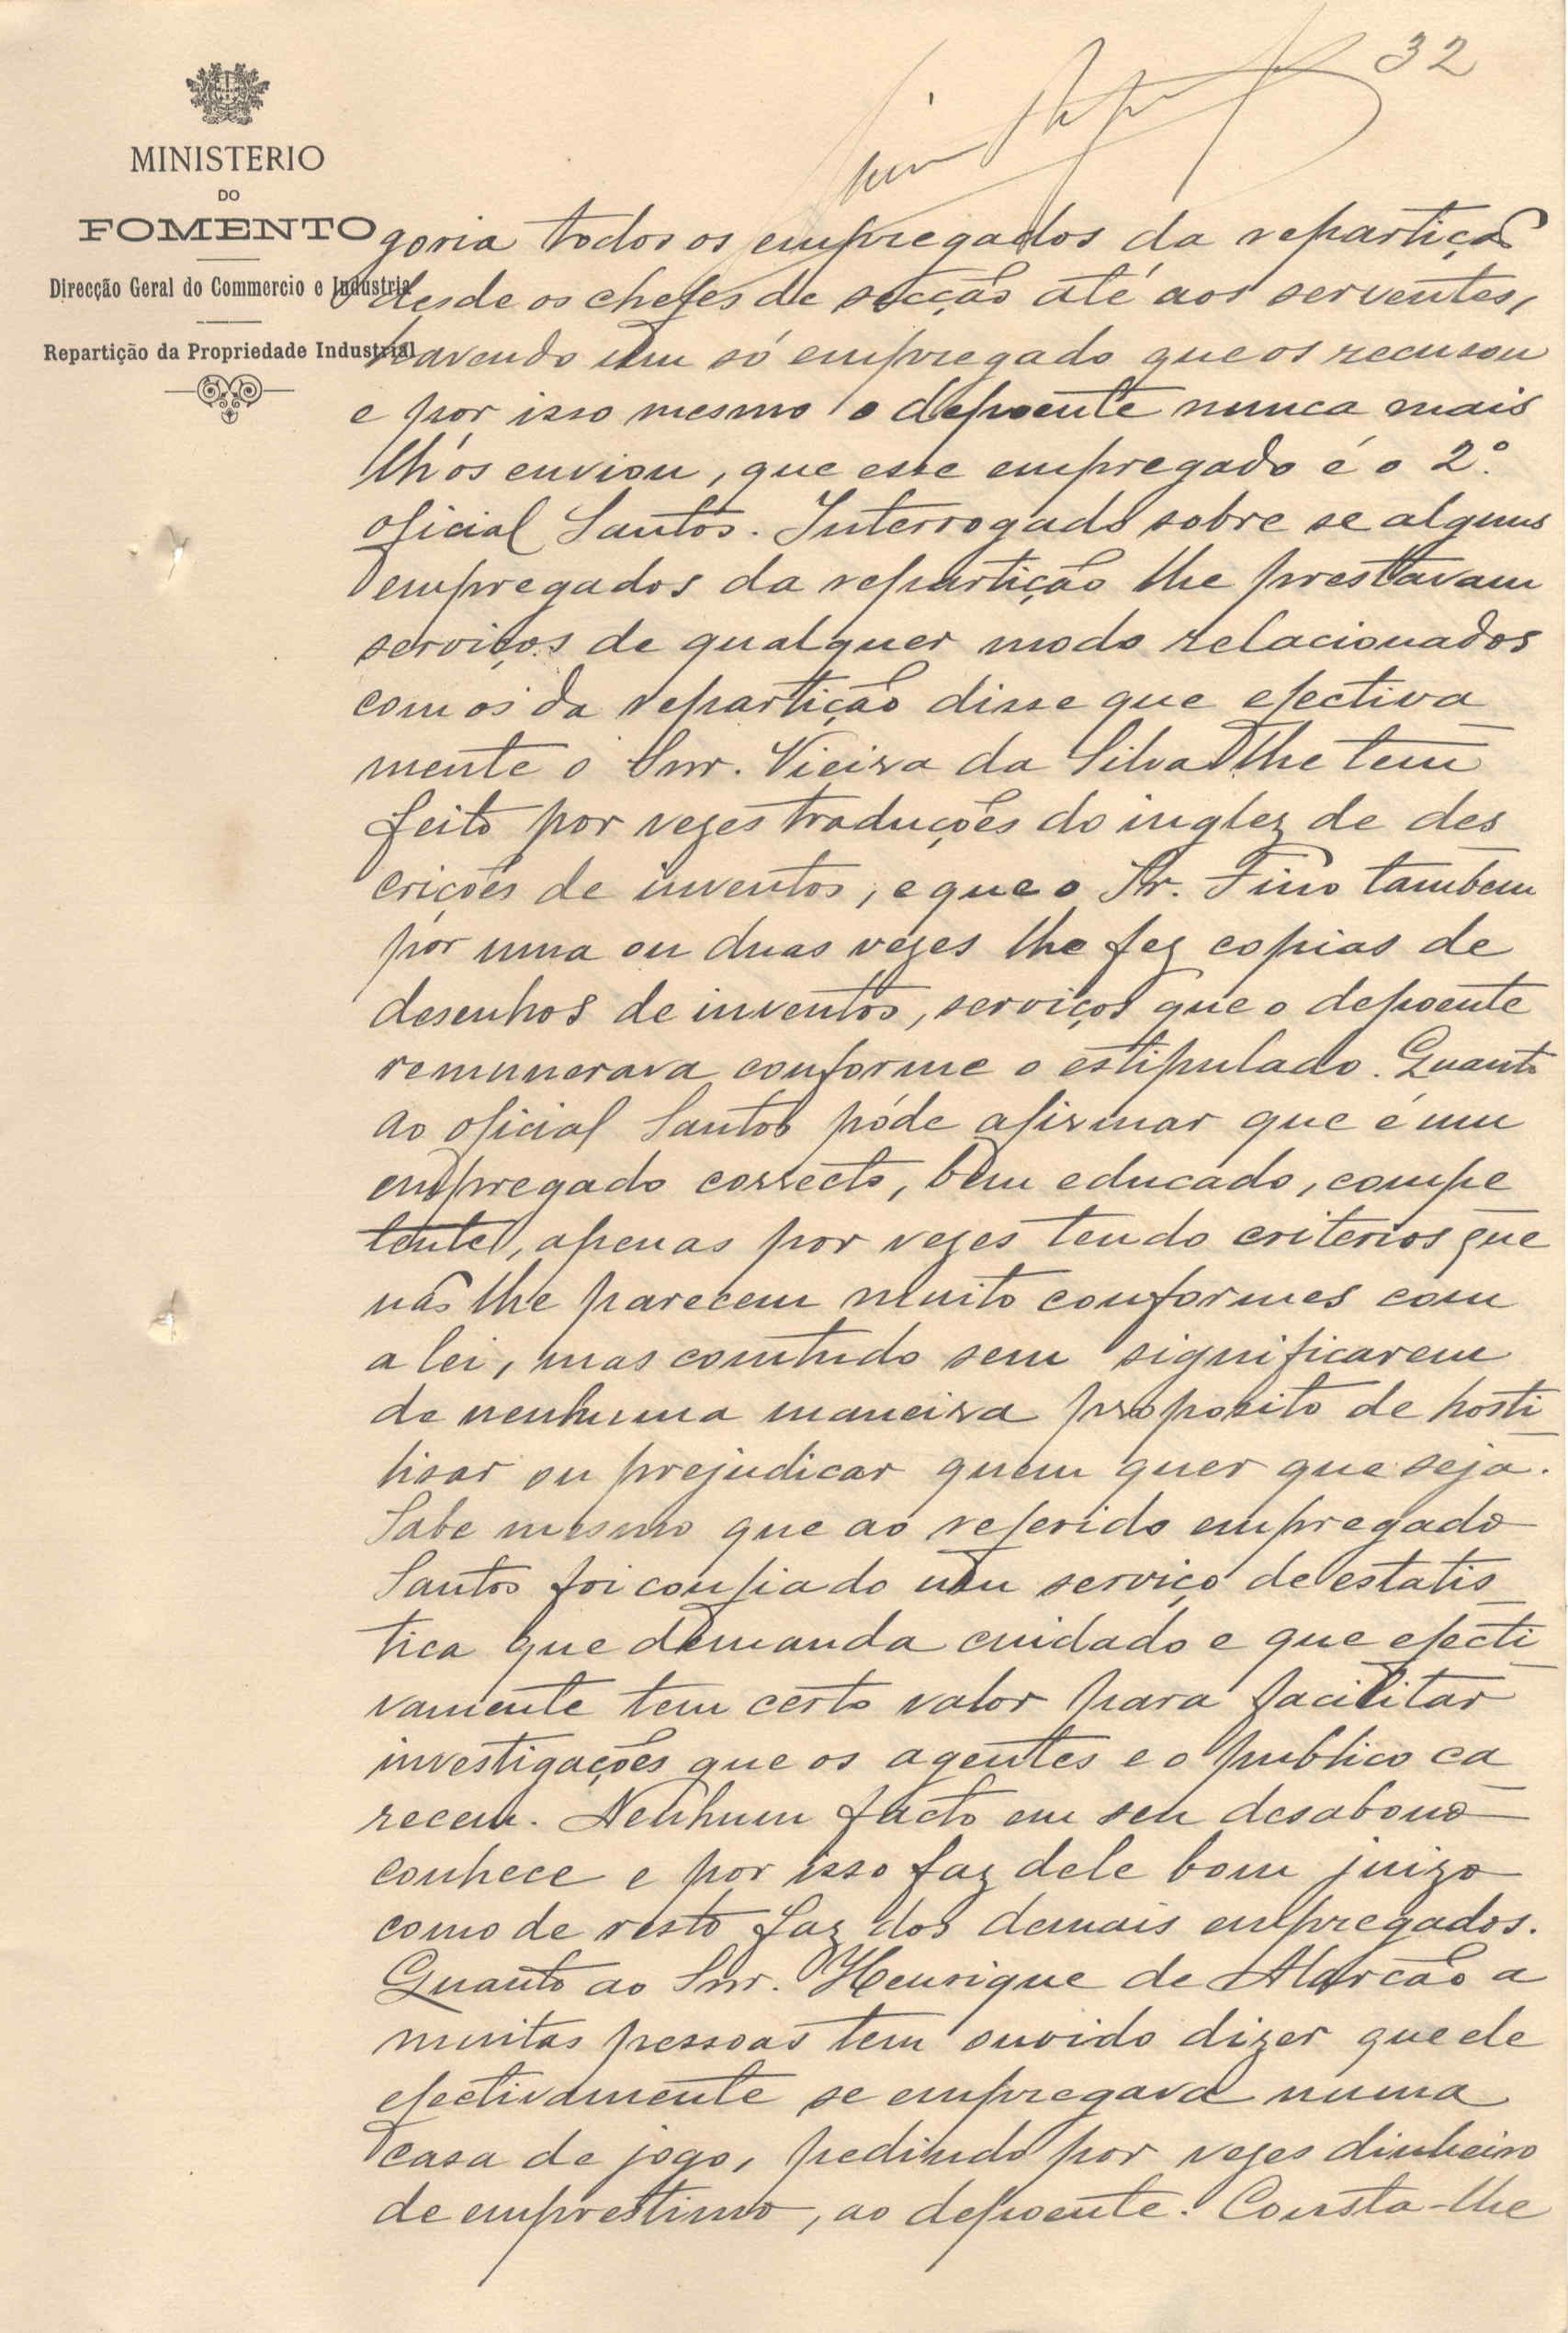 32
MINISTERIO
DO
FOMENTO
Direcção Geral do Commercio e Industria
Repartição da Propriedade Industrial
goria todos os empregados da repartição
desde os chefes de secção até aos serventes,
havendo um só empregado que os recusou
e por isso mesmo o depoente nunca mais
lh'os enviou, que esse empregado é o 2.º
oficial Santos. Interrogado sobre se alguns
empregados da repartição lhe prestavam
serviços de qualquer modo relacionados
com os da repartição disse que efectiva
mente o Snr. Vieira da Silva lhe tem
feito por vezes traduções do inglez de des
crições de inventos, e que o Sr. Fino tambem
por uma ou duas vezes lhe fez copias de
desenhos de inventos, serviços que o depoente
remunerava conforme o estipulado. Quanto
ao oficial Santos póde afirmar que é um
empregado correcto, bem educado, compe
tente, apenas por vezes tendo criterios que
não lhe parecem muito conformes com
a lei, mas comtudo sem significarem
de nenhuma maneira proposito de hosti
lisar ou prejudicar quem quer que seja.
Sabe mesmo que ao referido empregado
Santos foi confiado um serviço de estatis
tica que demanda cuidado e que efecti
vamente tem certo valor para facilitar
investigações que os agentes e o publico ca
recem. Nenhum facto em seu desabono
conhece e por isso faz dele bom juizo
como de resto faz dos demais empregados.
Quanto ao Snr. Henrique de Alarcão a
muitas pessoas tem ouvido dizer que ele
efectivamente se empregava numa
casa de jogo, pedindo por vezes dinheiro
de emprestimo, ao depoente. Consta-lhe